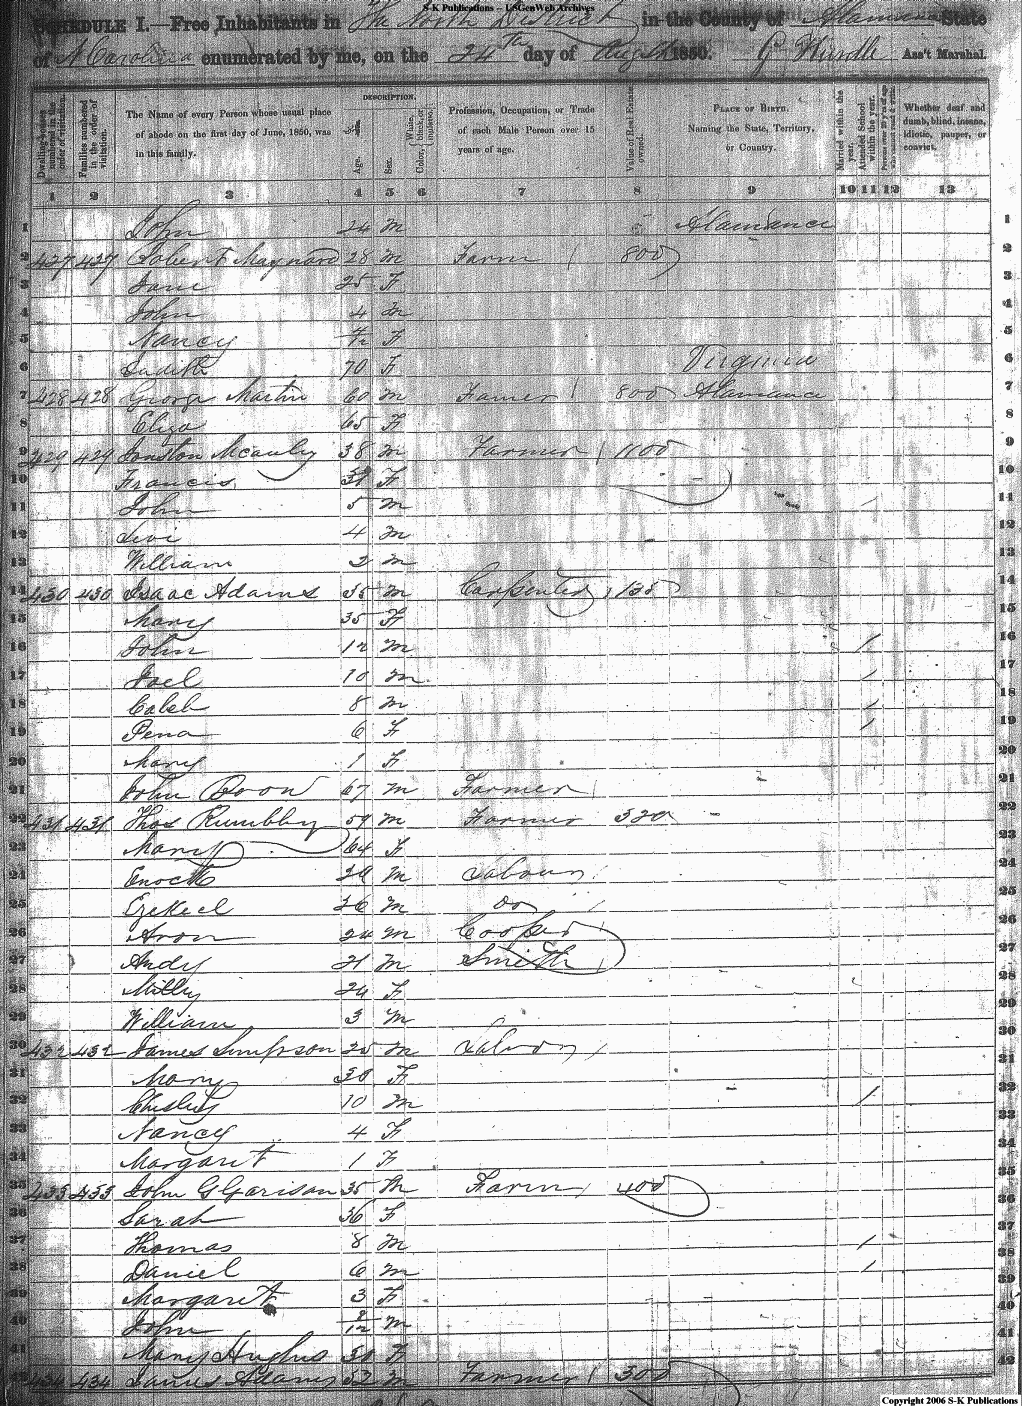 S-K Publications – USGenWeb Archives
SCHEDULE I.—Free Inhabitants in The North District in the County of Alamance State
of N Carolina enumerated by me, on the 24th day of August 1850. Ass't Marshal.
Dwelling-houses numbered in the order of visitation.
Families numbered in the order of visitation.
The Name of every Person whose usual place of abode on the first day of June, 1850, was in this family.
DESCRIPTION.
Age.
Sex.
Color, White, black, or mulatto.
Profession, Occupation, or Trade of each Male Person over 15 years of age.
Value of Real Estate owned.
PLACE OF BIRTH. Naming the State, Territory, or Country.
Married within the year.
Attended School within the year.
Whether deaf and dumb, blind, insane, idiotic, pauper, or convict.
1 2 3 4 5 6 7 8 9 10 11 12 13
1 John 24 m Alamance 1
2 427 427 Robert Maynard 28 m Farm 800 2
3 Jane 25 F 3
4 John 4 m 4
5 Nancy F 5
6 Judith 70 F Virginia 6
7 428 428 George Martin 60 m Farmer 800 Alamance 7
8 Eliza 65 F 8
9 429 429 Jonston Mcauley 38 m Farmer 1100 9
10 Francis F 10
11 John 5 m 11
12 Levi 4 m 12
13 William 2 m 13
14 430 430 Isaac Adams 35 m Carpenter 135 14
15 Mary 35 F 15
16 John 12 m 16
17 Joel 10 m 17
18 Caleb 8 m 18
19 Pena 6 F 19
20 Mary 1 F 20
21 John Boon 67 m Farmer 21
22 431 431 Thos Rumbley 59 m Farmer 320 22
23 Mary 64 F 23
24 Enoch m Labour 24
25 Ezekiel 26 m Do 25
26 Aron 24 m Cooper 26
27 Andy 21 m Smith 27
28 Milly 24 F 28
29 William 3 m 29
30 432 432 James Simpson 25 m Labor 30
31 Mary 30 F 31
32 Chesley 10 m 32
33 Nancy 4 F 33
34 Margaret 1 F 34
35 433 433 John G Garison 35 m Farm 400 35
36 Sarah 36 F 36
37 Thomas 8 m 37
38 Daniel 6 m 38
39 Margaret 3 F 39
40 John m 40
41 Mary Hughs F 41
42 434 434 James Adams 52 m Farmer 300 42
Copyright 2006 S-K Publications